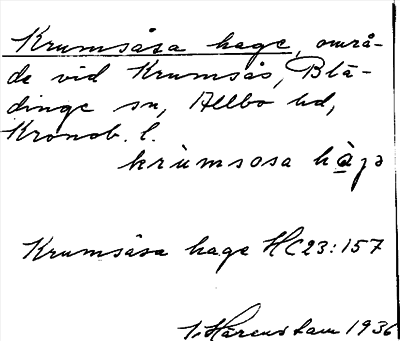 Krumsåsa hage, områ-
de vid Krumsås, Blä-
dinge sn, Allbo hd,
Kronob. l.
krùmsosa hàgə
Krumsåsa hage HC23:157
Härenstam 1936